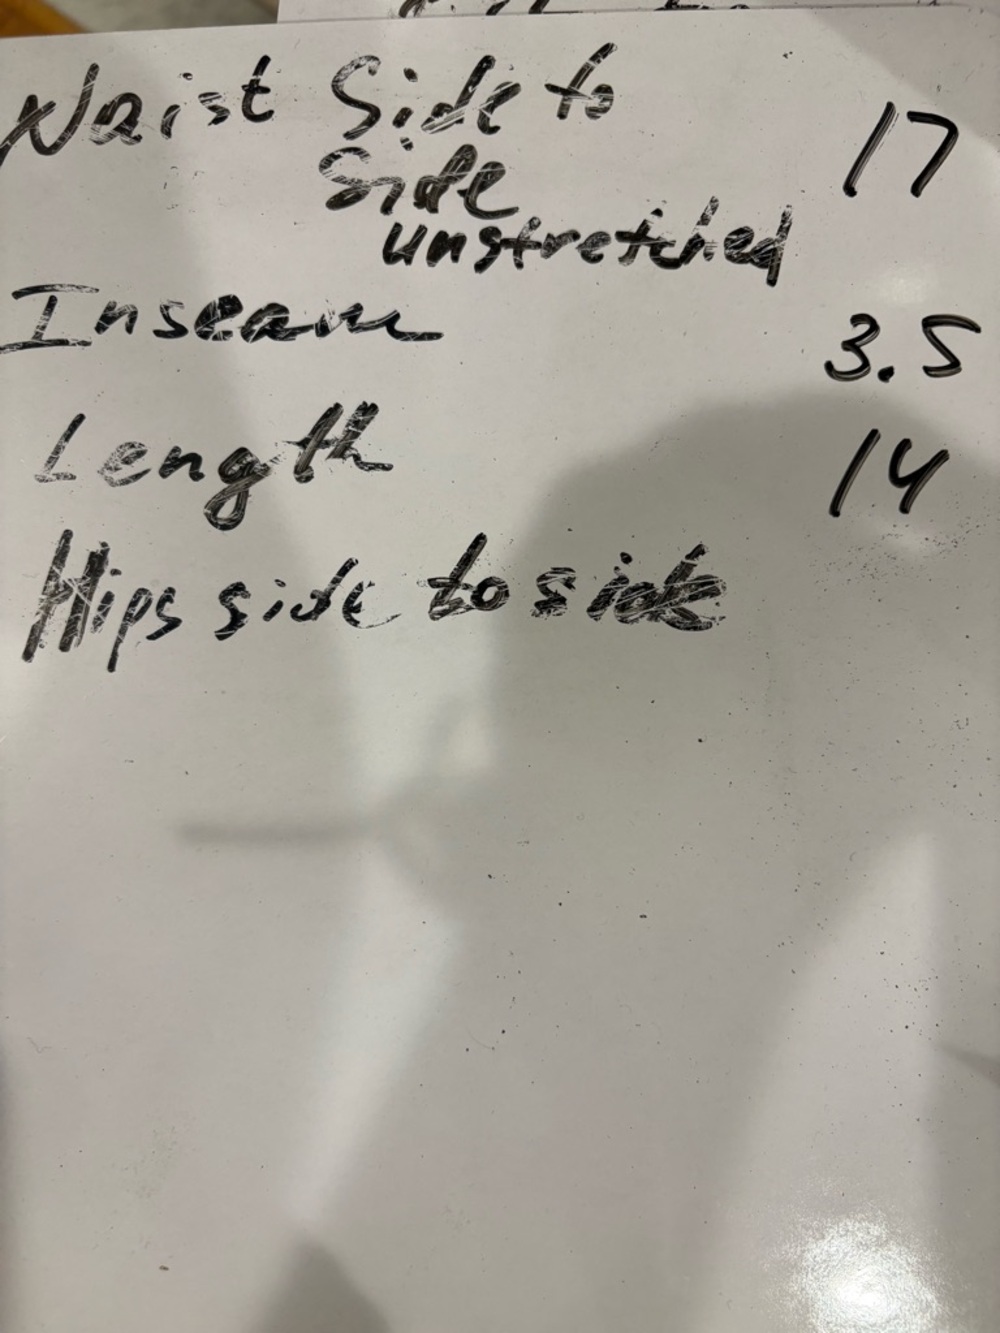 Waist Side to 17
Side
unstretched
Inseam 3.5
Length 14
Hips side to side